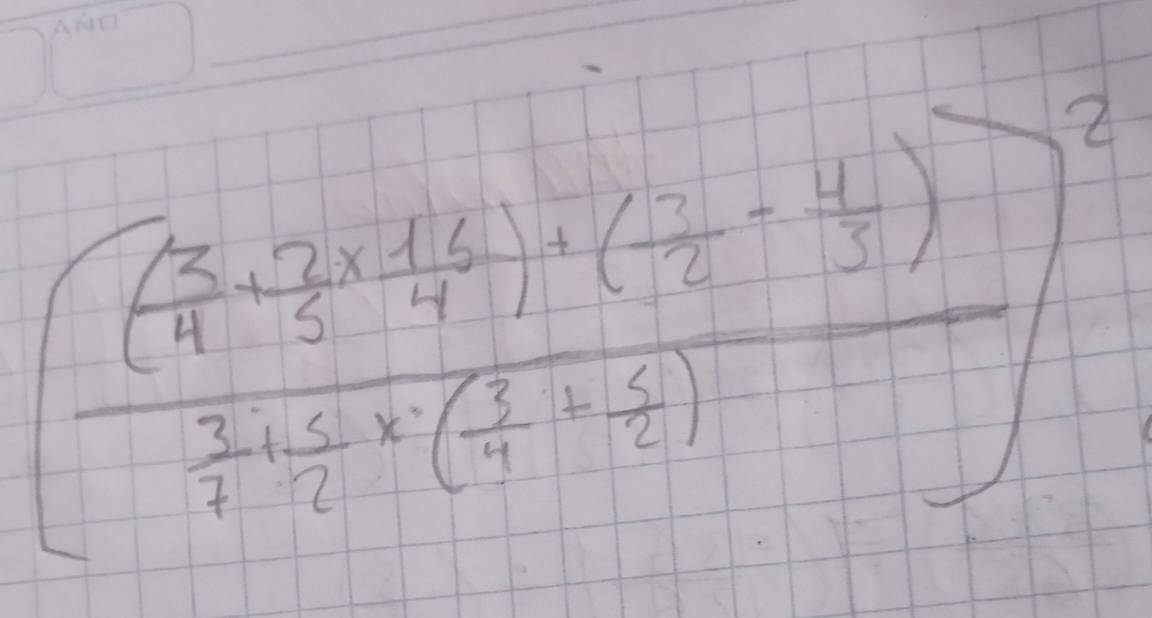 AÑO
[ (3/4 + 2/5 x 15/4) + (3/2 - 4/3)
3/7 + 5/2 x (3/4 + 5/2) ]²